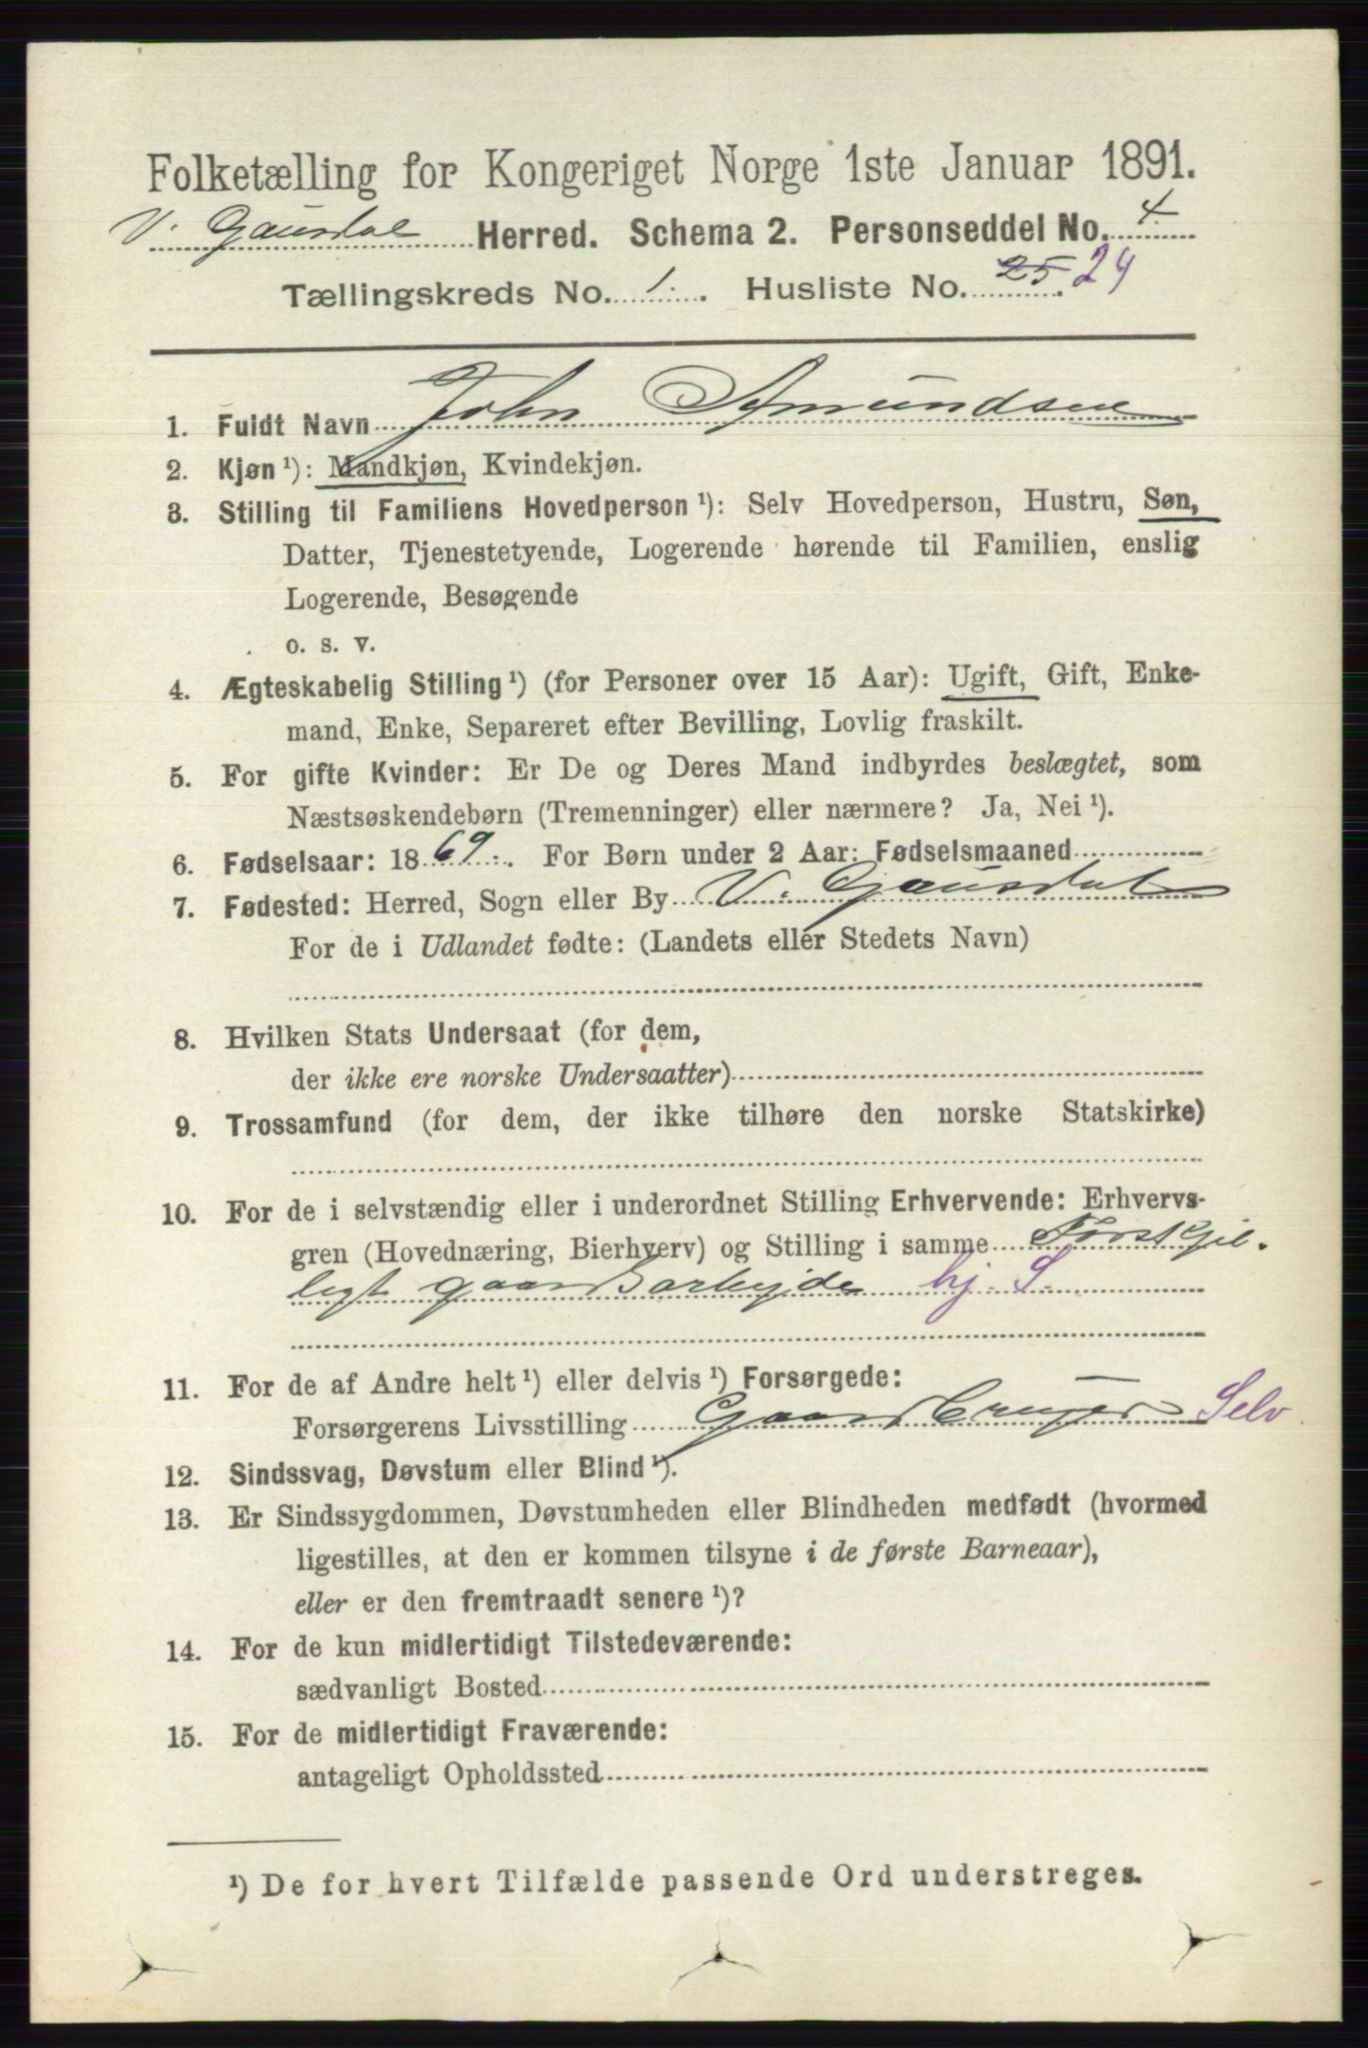 Folketælling for Kongeriget Norge 1ste Januar 1891.
V. Gausdal Herred. Schema 2. Personseddel No. 4
Tællingskreds No. 1. Husliste No. 25 24
1. Fuldt Navn John Amundsen
2. Kjøn ¹): Mandkjøn, Kvindekjøn.
3. Stilling til Familiens Hovedperson ¹): Selv Hovedperson, Hustru, Søn,
Datter, Tjenestetyende, Logerende hørende til Familien, enslig
Logerende, Besøgende
o. s. v.
4. Ægteskabelig Stilling ¹) (for Personer over 15 Aar): Ugift, Gift, Enke-
mand, Enke, Separeret efter Bevilling, Lovlig fraskilt.
5. For gifte Kvinder: Er De og Deres Mand indbyrdes beslægtet, som
Næstsøskendebørn (Tremenninger) eller nærmere? Ja, Nei ¹).
6. Fødselsaar: 1869. For Børn under 2 Aar: Fødselsmaaned
7. Fødested: Herred, Sogn eller By V. Gausdal
For de i Udlandet fødte: (Landets eller Stedets Navn)
8. Hvilken Stats Undersaat (for dem,
der ikke ere norske Undersaatter)
9. Trossamfund (for dem, der ikke tilhøre den norske Statskirke)
10. For de i selvstændig eller i underordnet Stilling Erhvervende: Erhvervs-
gren (Hovednæring, Bierhverv) og Stilling i samme Forskjel-
ligt gaardsarbeyde hj. S.
11. For de af Andre helt ¹) eller delvis ¹) Forsørgede:
Forsørgerens Livsstilling Gaardbruger Selv
12. Sindssvag, Døvstum eller Blind ¹).
13. Er Sindssygdommen, Døvstumheden eller Blindheden medfødt (hvormed
ligestilles, at den er kommen tilsyne i de første Barneaar),
eller er den fremtraadt senere ¹)?
14. For de kun midlertidigt Tilstedeværende:
sædvanligt Bosted
15. For de midlertidigt Fraværende:
antageligt Opholdssted
¹) De for hvert Tilfælde passende Ord understreges.